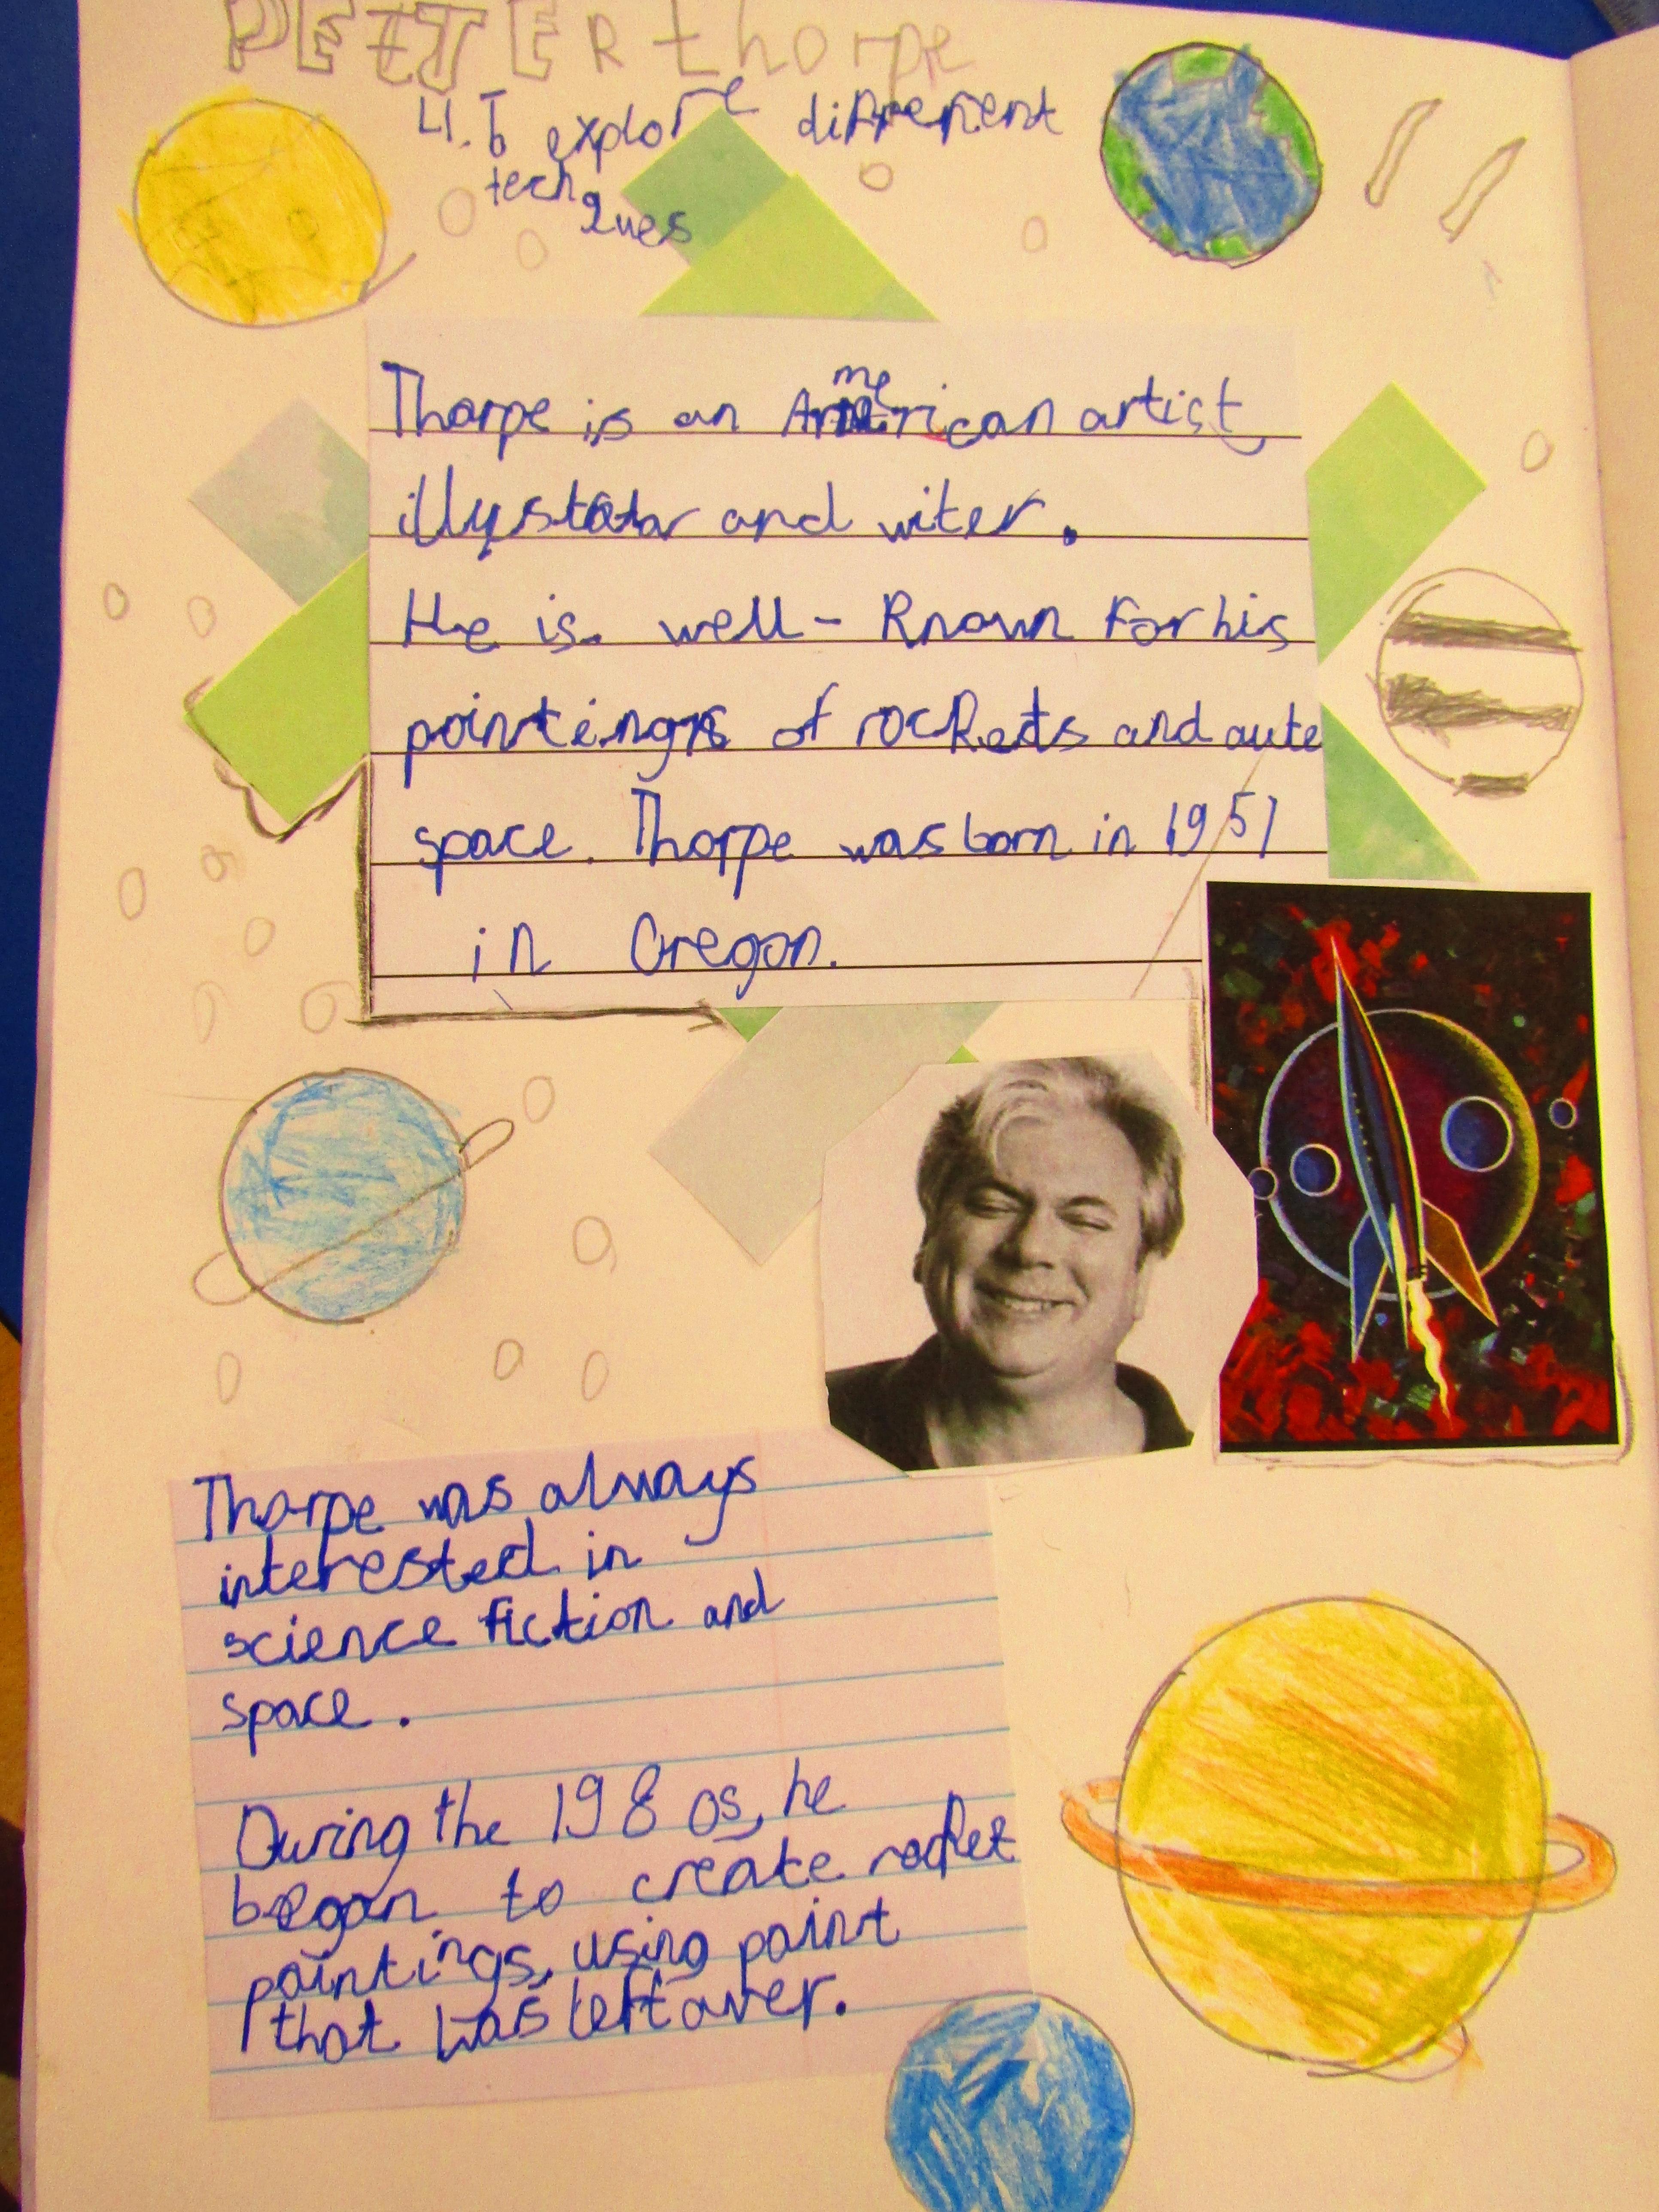 PETER thorpe
LI. To explore different
techques
Thorpe is an American artist
and witer.
He is well-Known For his
of rockets and oute
space. Thorpe was born in 1951
in Oregon.
Thorpe was always
interested in
science fiction and
space.
During the 1980s, he
began to create rocket
paintings, using paint
that was left over.